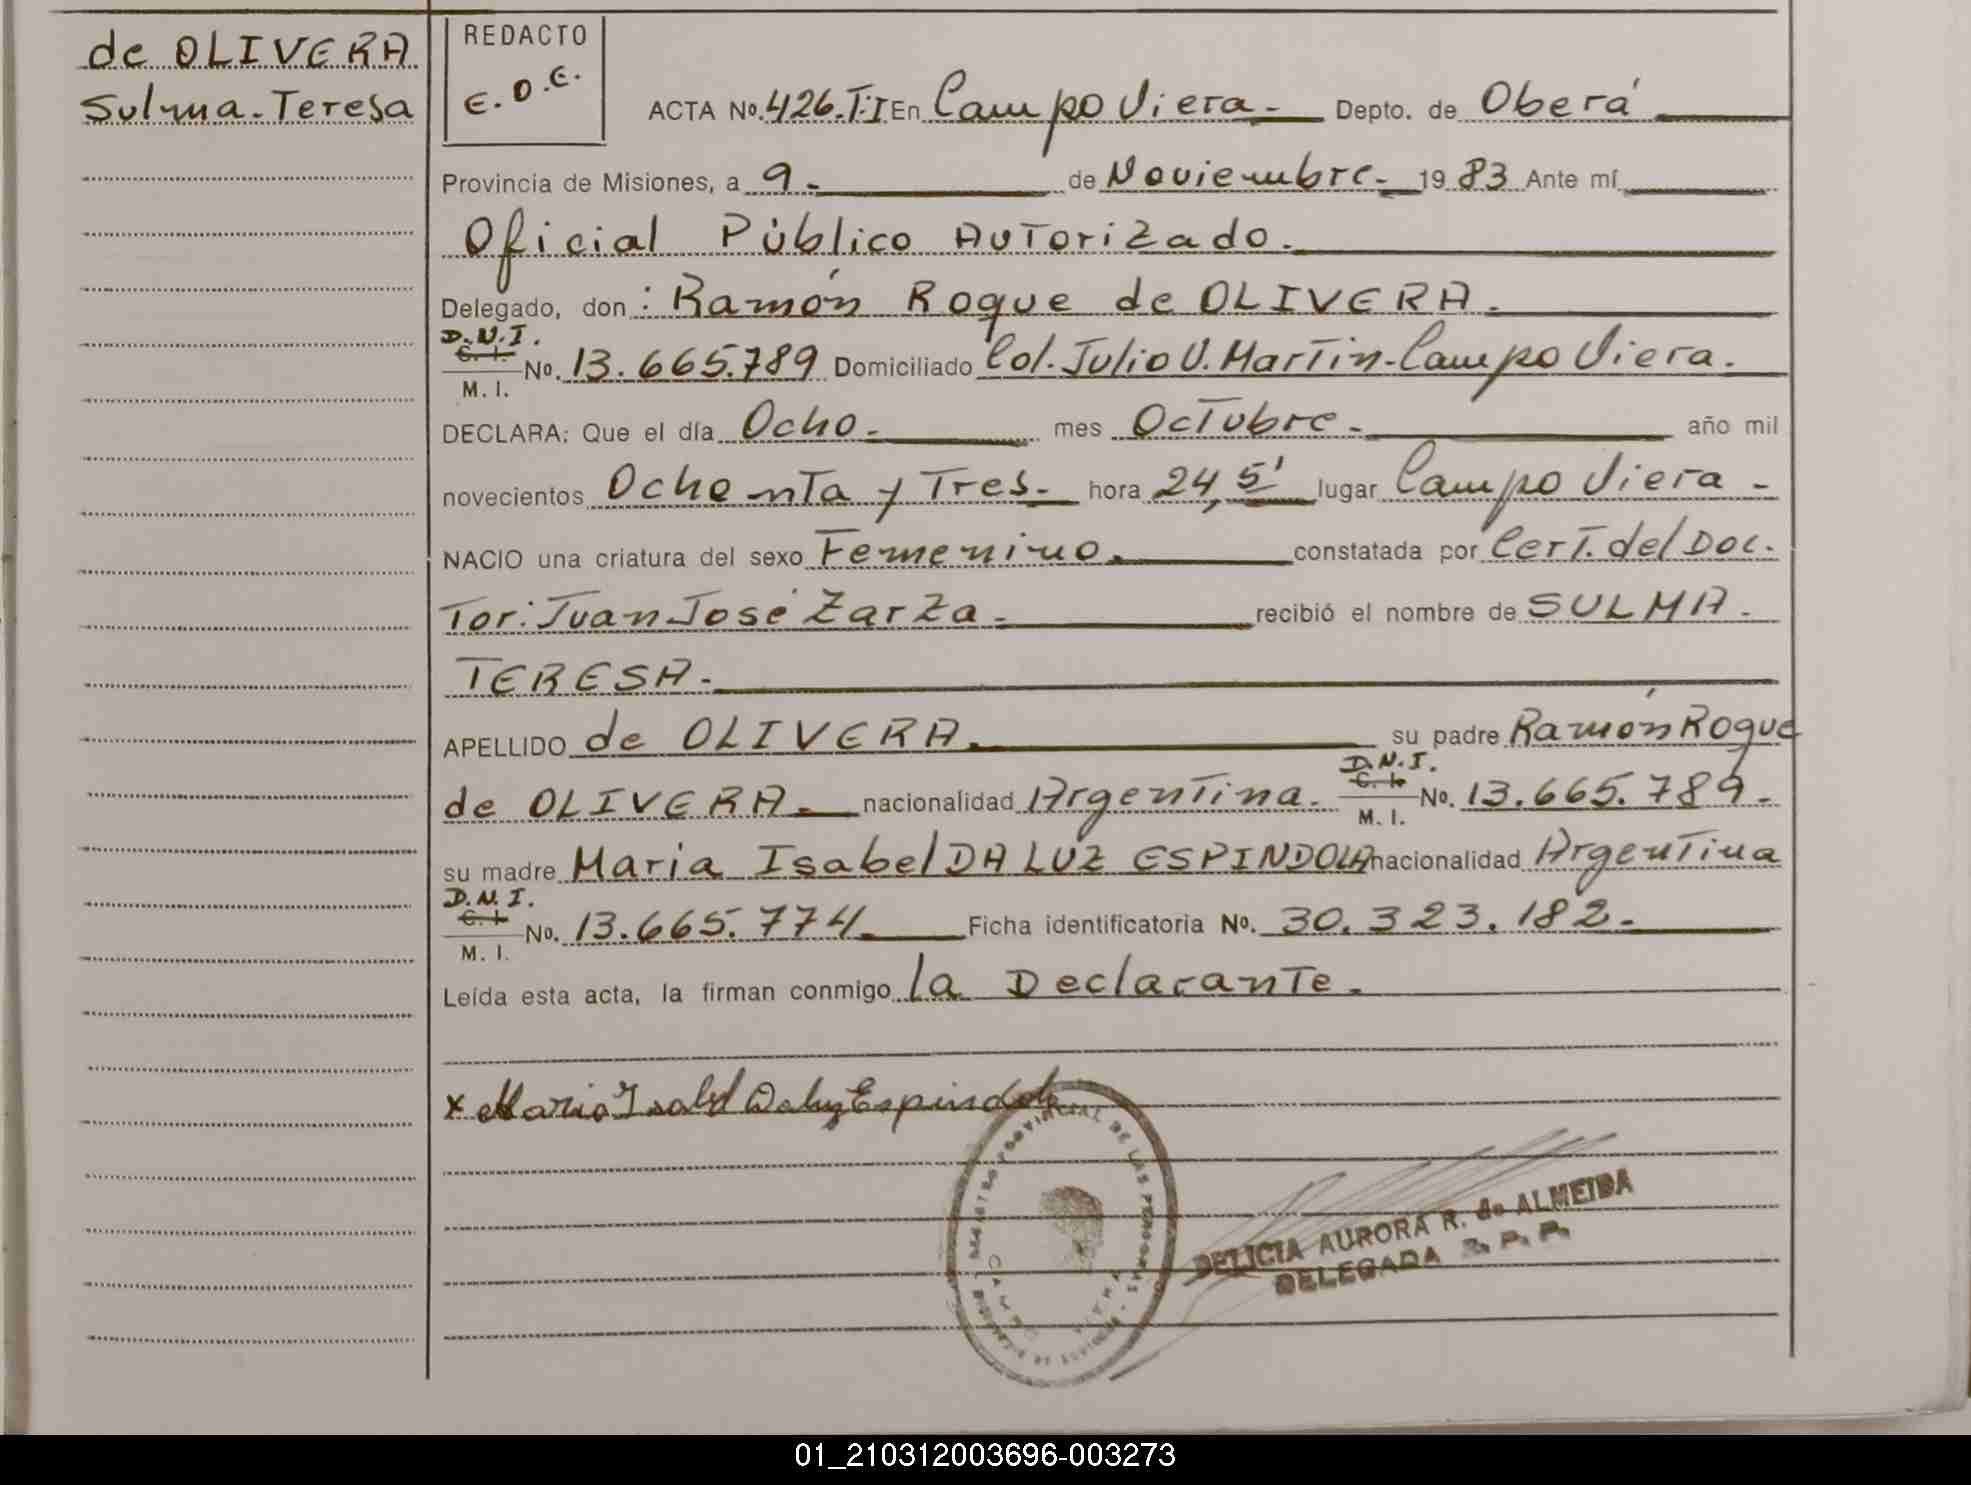 de OLIVERA
Sulma-Teresa
REDACTO
E.D.E.
ACTA No. 426.T:I En Campo Viera- Depto. de Oberá
Provincia de Misiones, a 9- de Noviembre- 19 83 Ante mí
Oficial Público Autorizado.
Delegado, don: Ramón Roque de OLIVERA.
D.N.I.
C. I.
M. I. No. 13.665.789 Domiciliado Col. Julio U. Martin-Campo Viera.
DECLARA: Que el día Ocho- mes Octubre- año mil
novecientos Ochenta y Tres- hora 24,5' lugar Campo Viera -
NACIO una criatura del sexo Femenino. constatada por Cert. del Doc.
Tor: Juan José Zarza- recibió el nombre de SULMA-
TERESA.
APELLIDO de OLIVERA. su padre Ramón Roque
de OLIVERA. nacionalidad Argentina. D.N.I. C. I. M. I. No. 13.665.789-
su madre Maria Isabel DA LUZ ESPINDOLA nacionalidad Argentina
D.N.I.
C. I.
M. I. No. 13.665.774. Ficha identificatoria No. 30.323.182-
Leída esta acta, la firman conmigo la Declarante.
x Maria Isabel Daluz Espindola
REGISTRO PROVINCIAL DE LAS PERSONAS
DELICIA AURORA R. de ALMEIDA
DELEGADA R. P. P.
01_210312003696-003273